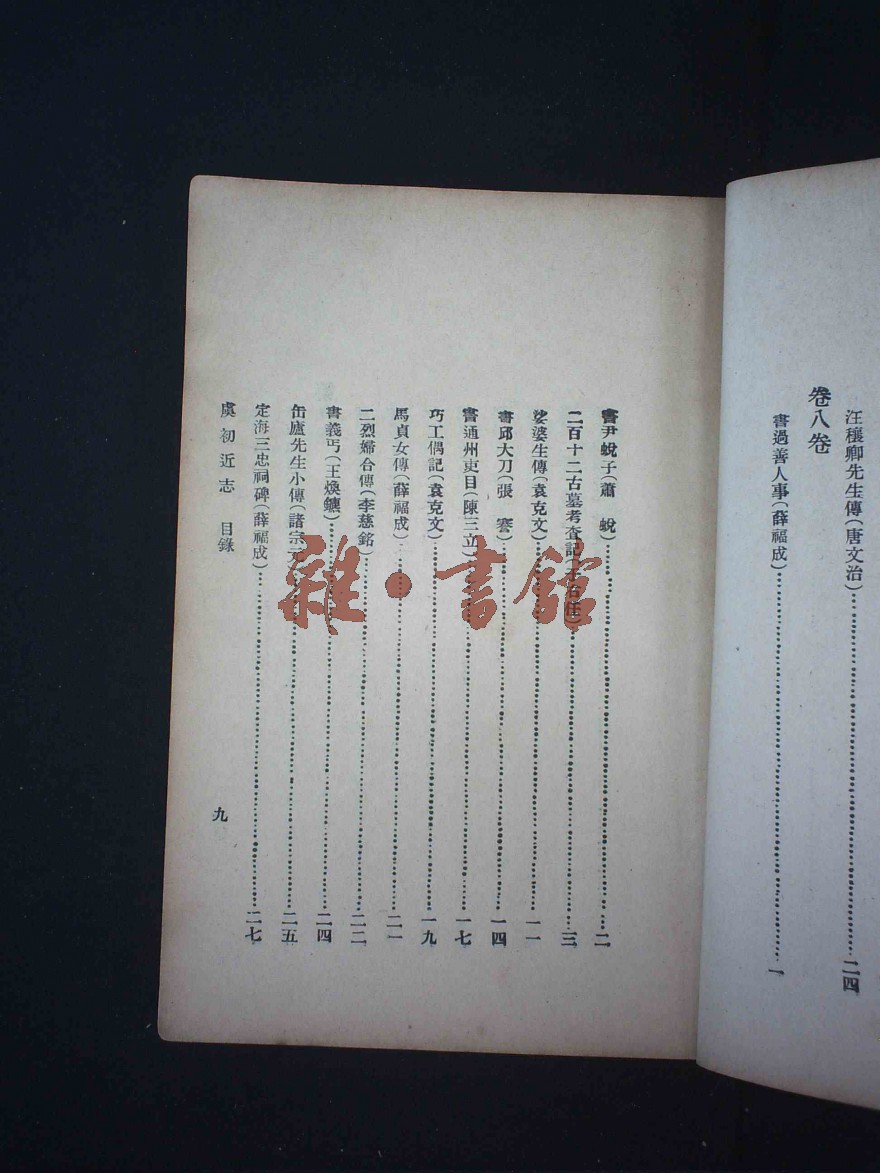 汪穰卿先生傳(唐文治)…………二四
卷八卷
書過善人事(薛福成)…………一
書尹蛻子(蕭 蛻)…………二
二百十二古墓考查記(于右任)…………三
娑婆生傳(袁克文)…………一一
書邱大刀(張 謇)…………一四
書通州吏目(陳三立)…………一七
巧工偶記(袁克文)…………一九
馬貞女傳(薛福成)…………二一
二烈婦合傳(李慈銘)…………二二
書義丐(王煥鑣)…………二四
缶廬先生小傳(諸宗元)…………二五
定海三忠祠碑(薛福成)…………二七
虞初近志 目錄
九
雜·書館